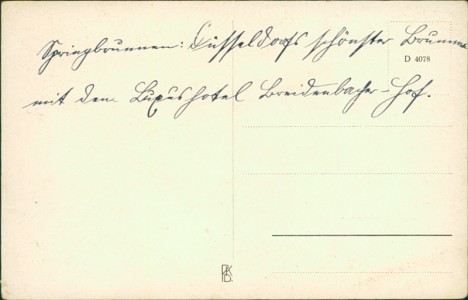 Springbrunnen: Düsseldorfs schönster Brunnen
D 4078
mit dem Luxushotel Breidenbacher-Hof.